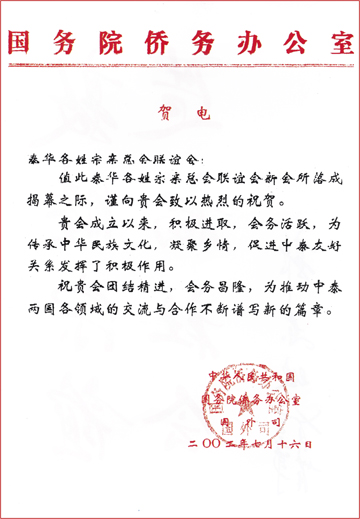 国务院侨务办公室
贺电
泰华各姓宗亲总会联谊会：
值此泰华各姓宗亲总会联谊会新会所落成
揭幕之际，谨向贵会致以热烈的祝贺。
贵会成立以来，积极进取，会务活跃，为
传承中华民族文化，凝聚乡情，促进中泰友好
关系发挥了积极作用。
祝贵会团结精进，会务昌隆，为推动中泰
两国各领域的交流与合作不断谱写新的篇章。
中华人民共和国
国务院侨务办公室
国外司
年七月十六日